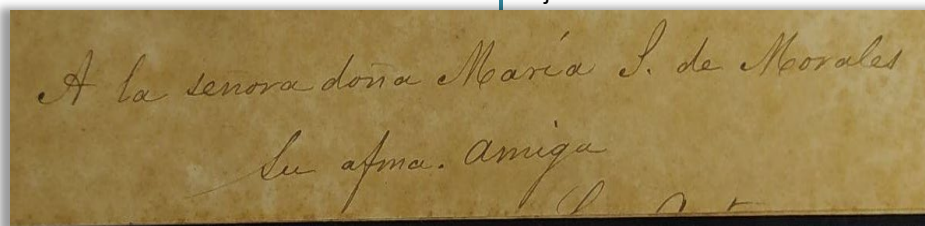 A la senora doña María S. de Morales
Su afma. amiga